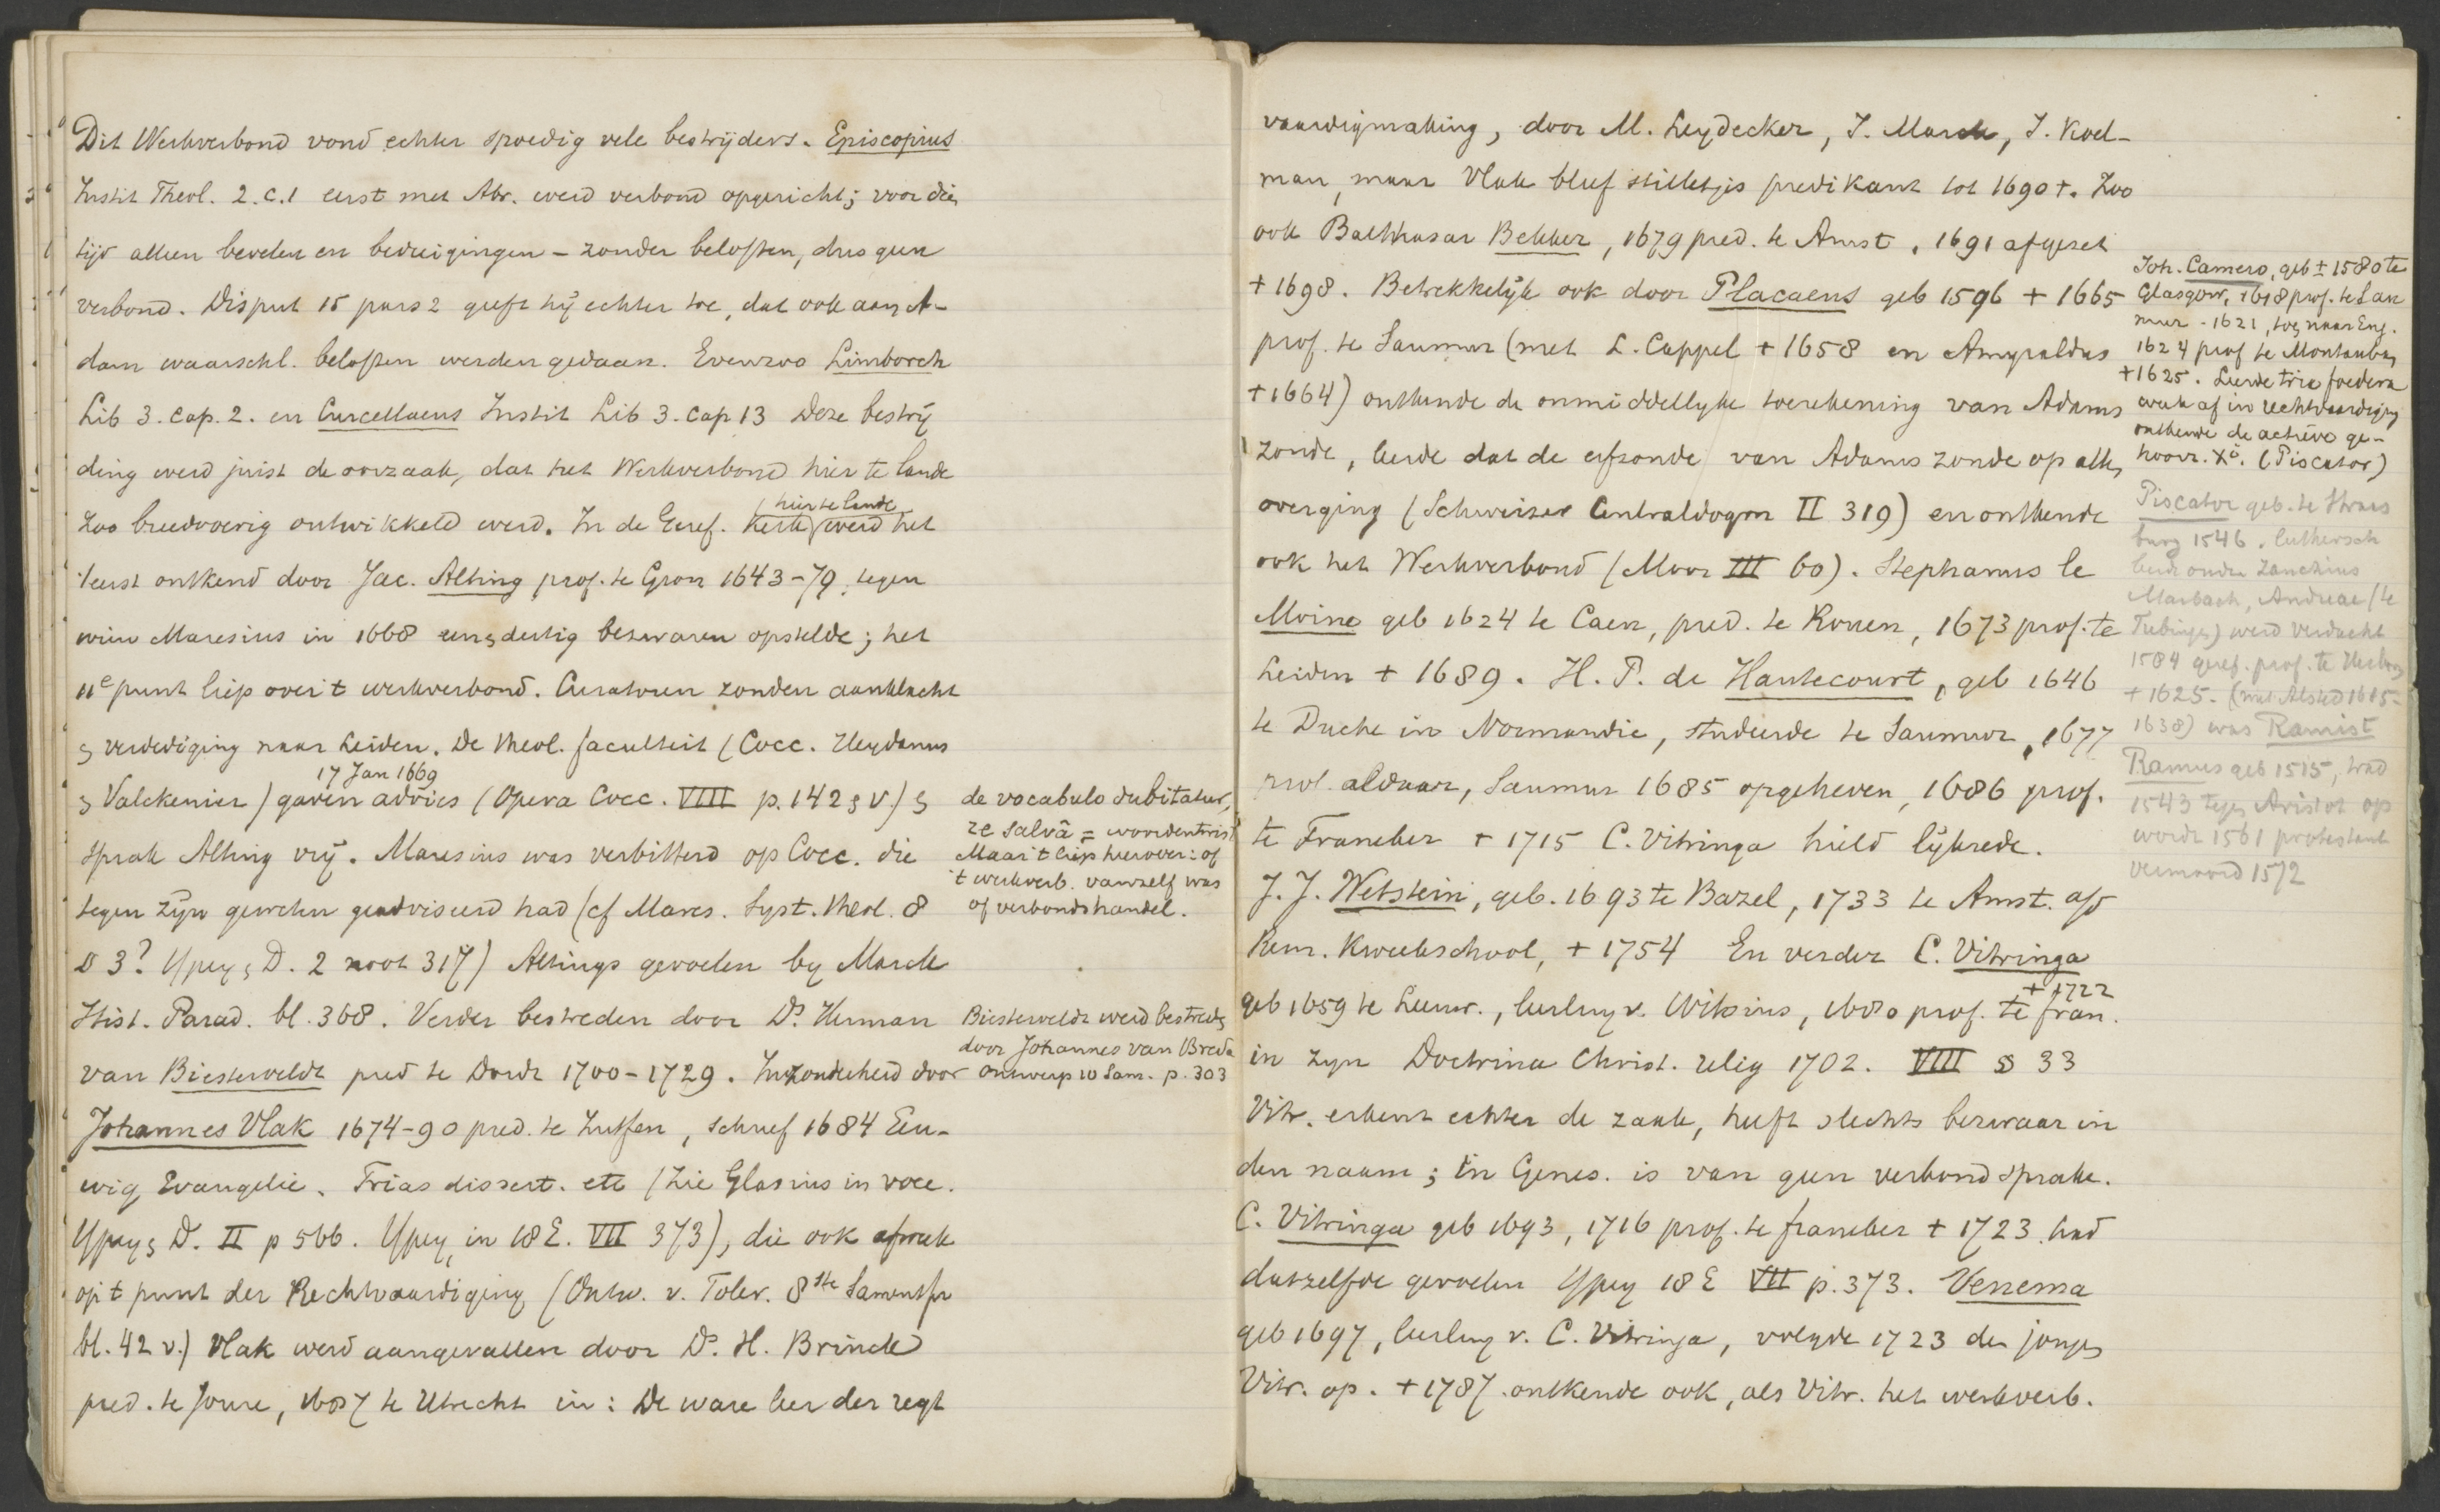 Dit Werkverbond vond echter spoedig vele bestrijders. Episcopius
Instit Theol. 2. c. 1 eerst met Abr. werd verbond opgericht; voor dien
tijd alleen bevelen en bedreigingen - zonder beloften, dus geen
verbond. Disput 15 pars 2 geeft hij echter toe, dat ook aan A-
dam waarschl. beloften werden gedaan. Evenzoo Limborch
Lib 3. cap. 2. en Curcellaeus Instit Lib 3. cap 13 Deze bestrij
ding werd juist de oorzaak, dat het Werkverbond hier te lande
zoo breedvoerig ontwikkeld werd. In de Geref. Kerk (hier te lande werd het
't eerst ontkend door Jac. Alting prof. te Gron 1643-79, tegen
wien Maresius in 1668 een en dertig bezwaren opstelde; het
11e punt liep over 't werkverbond. Curatoren zonden aanklacht
en verdediging naar Leiden. De theol. faculteit (Cocc. Heydanus
17 Jan 1669
en Valckenier) gaven advies (Opera Cocc. VIII p. 142 en v.) en
sprak Alting vrij. Maresius was verbitterd op Cocc. die
tegen zijn geweten geadviseerd had (cf Mares. Syst. theol. 8
§ 3? Ypey en D. 2 noot 317) Altings gevoelen by Marck
Hist. Parad. bl. 368. Verder bestreden door Ds. Herman
van Biesterveldt pred te Dordr 1700-1729. Inzonderheid door
Johannes Vlak 1674-90 pred. te Zutfen, schreef 1684 Eeu-
wig Evangelie. Trias dissert. etc (Zie Glasius in voce.
Ypey en D. II p 566. Ypey, in 18 E. VII 373), die ook afweek
op 't punt der Rechtvaardiging (Ontw. v. Toler. 8ste Samenspr
bl. 42 v.) Vlak werd aangevallen door Ds. H. Brinck
pred. te Joure, 1687 te Utrecht in: De ware leer der regt
de vocabulo dubitatur,
re salvâ = woordentwist
Maar 't liep hierover: of
't werkverb. vanzelf was
of verbondshandel.
Biesterveldt werd bestreden
door Johannes van Breda
Ontwerp 10 Sam. p. 303
vaardigmaking, door M. Leydecker, J. Marck, J. Koel-
man, maar Vlak bleef stilletjes predikant tot 1690 †. Zoo
ook Balthasar Bekker, 1679 pred. te Amst. 1691 afgezet
† 1698. Betrekkelijk ook door Placaeus geb 1596 † 1665
prof. te Saumur (met L. Cappel † 1658 en Amyraldus
† 1664) ontkende de onmiddellyke toerekening van Adams
zonde, leerde dat de erfzonde van Adams zonde op allen
overging (Schweizer Centraldogm II 319) en ontkende
ook het Werkverbond (Moor III 60). Stephanus le
Moine geb 1624 te Caen, pred. te Rouen, 1673 prof. te
Leiden † 1689. H. P. de Hautecourt, geb 1646
te Duche in Normandie, studeerde te Saumur, 1677
prof. aldaar, Saumur 1685 opgeheven, 1686 prof.
te Franeker † 1715 C. Vitringa hield lijkrede.
J. J. Wetstein, geb. 1693 te Bazel, 1733 te Amst. a/d
Rem. Kweekschool, † 1754 En verder C. Vitringa
† 1722
geb 1659 te Leeuw., leerling v. Witsius, 1680 prof. te Fran.
in zijn Doctrina Christ. relig 1702. VIII § 33
Vitr. erkent echter de zaak, heeft slechts bezwaar in
den naam; in Genes. is van geen verbond sprake.
C. Vitringa geb 1693, 1716 prof. te Franeker † 1723 had
datzelfde gevoelen Ypey 18 E VII p. 373. Venema
geb 1697, leerling v. C. Vitringa, volgde 1723 den jongen
Vitr. op. † 1787. ontkende ook, als Vitr. het werkverb.
Joh. Camero, geb ± 1580 te
Glasgow, 1618 prof. te Sau
mur - 1621, toen naar Eng.
1624 prof te Montauban
† 1625. Leerde tria foedera
week af in rechtvaardiging
ontkende de actieve ge-
hoorz. Xi. (Piscator)
Piscator geb. te Straas
burg 1546. luthersch
leerde onder Zanchius
Marbach, Andreae (te
Tubingen) werd verdacht
1584 geref. prof. te Herborn
† 1625. (met Alsted 1615-
1638) was Ramist
Ramus geb 1515, trad
1543 tegen Aristot op
wordt 1561 protestant
vermoord 1572